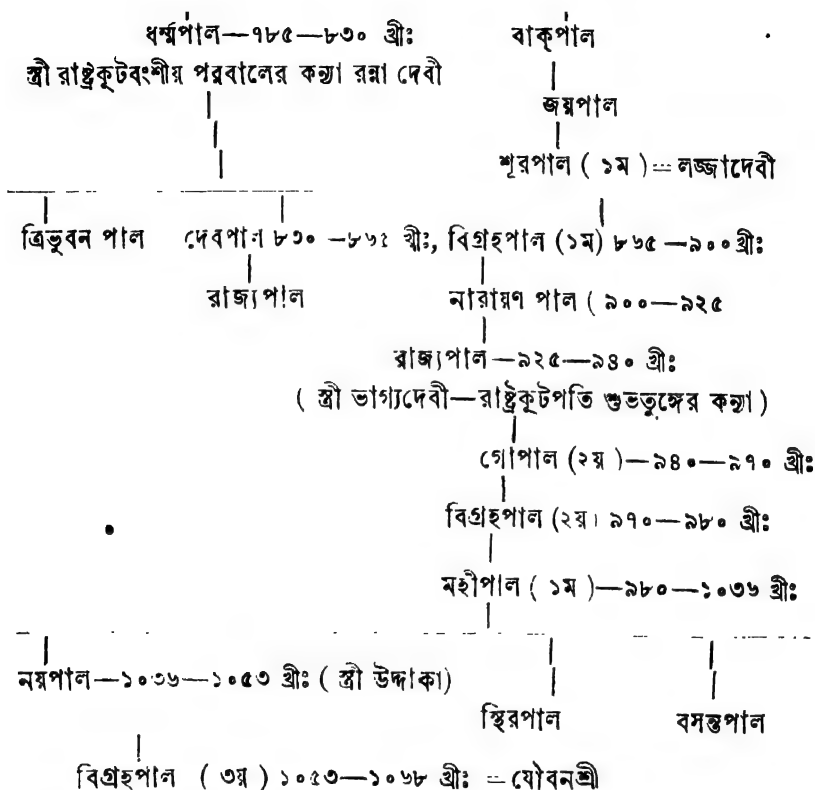 ধর্ম্মপাল—৭৮৫—৮৩০ খ্রীঃ বাক্‌পাল
স্ত্রী রাষ্ট্রকূটবংশীয় পরবালের কন্যা রন্না দেবী
জয়পাল
শূরপাল ( ১ম ) = লজ্জাদেবী
ত্রিভুবন পাল দেবপাল ৮৩০ —৮৬৫ খ্রীঃ, বিগ্রহপাল (১ম) ৮৬৫ —৯০০ খ্রীঃ
রাজ্যপাল নারায়ণ পাল ( ৯০০—৯২৫
রাজ্যপাল —৯২৫—৯৪০ খ্রীঃ
( স্ত্রী ভাগ্যদেবী—রাষ্ট্রকূটপতি শুভতুঙ্গের কন্যা )
গোপাল (২য়)—৯৪০—৯৭০ খ্রীঃ
বিগ্রহপাল (২য়। ৯৭০—৯৮০ খ্রীঃ
মহীপাল ( ১ম )—৯৮০—১০৩৬ খ্রীঃ
নয়পাল—১০৩৬—১০৫৩ খ্রীঃ ( স্ত্রী উদ্দাকা)
স্থিরপাল বসন্তপাল
বিগ্রহপাল ( ৩য় ) ১০৫৩—১০৬৮ খ্রীঃ = যৌবনশ্রী